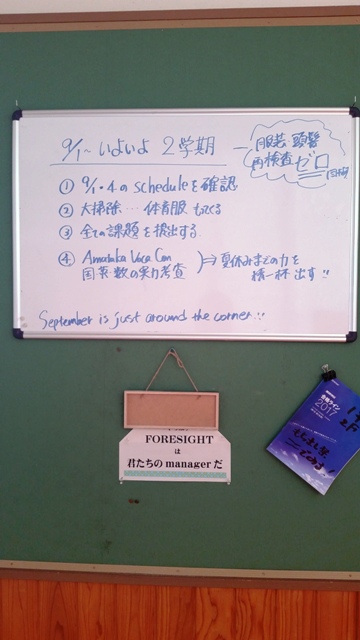 9/1~いよいよ 2学期
服装・頭髪
再検査ゼロ
① 9/1・4のscheduleを確認
② 大掃除…体育服もってくる
③ 全ての課題を提出する
④ Amataka Voca Con
国英数の実力考査
⇒夏休みまでの力を
精一杯出す!!
September is just around the corner!!
FORESIGHT
は
君たちのmanagerだ
合格ライン
2017